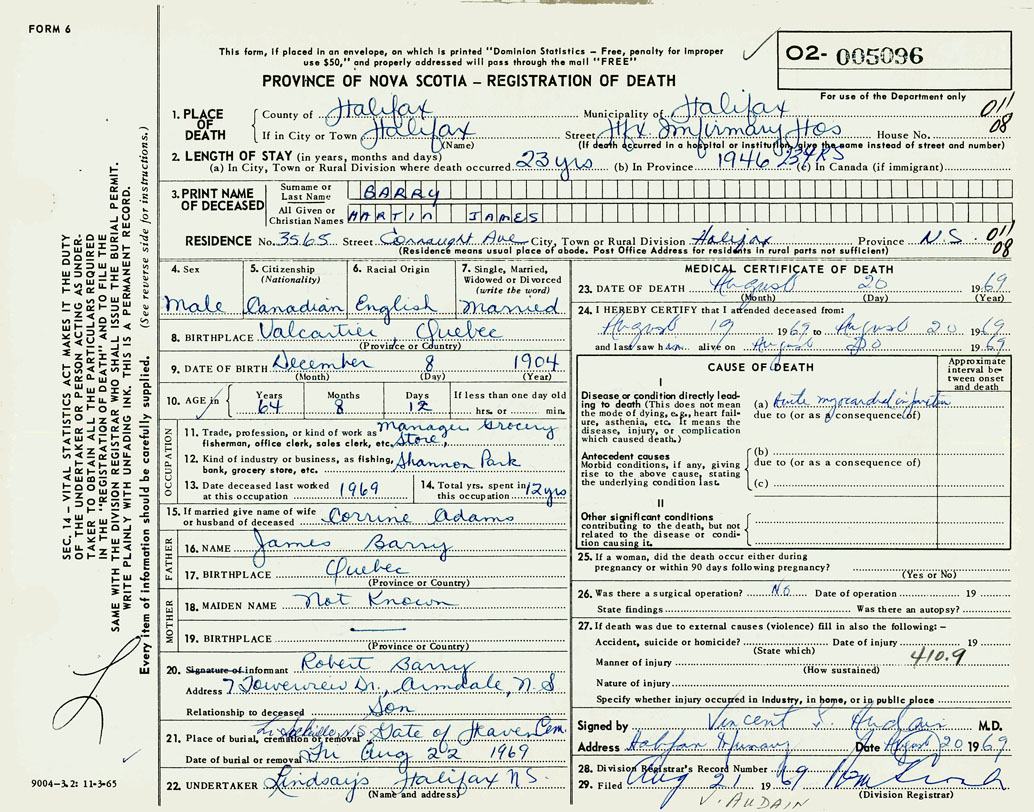 FORM 6
This form, if placed in an envelope, on which is printed "Dominion Statistics – Free, penalty for improper
use $50," and properly addressed will pass through the mail "FREE"
O2- 005096
For use of the Department only
PROVINCE OF NOVA SCOTIA – REGISTRATION OF DEATH
011
08
1. PLACE OF DEATH
County of Halifax Municipality of Halifax
If in City or Town Halifax Street Hfx. Infirmary Hos House No.
(Name) (If death occurred in a hospital or institution, give the same instead of street and number)
2. LENGTH OF STAY (in years, months and days)
(a) In City, Town or Rural Division where death occurred 23 yrs (b) In Province 1946 23 YRS (c) In Canada (if immigrant)
3. PRINT NAME OF DECEASED
Surname or Last Name BARRY
All Given or Christian Names MARTIN JAMES
RESIDENCE No. 3565 Street Connaught Ave City, Town or Rural Division Halifax Province N.S. 011
08
(Residence means usual place of abode. Post Office Address for residents in rural parts not sufficient)
4. Sex
Male
5. Citizenship
(Nationality)
Canadian
6. Racial Origin
English
7. Single, Married,
Widowed or Divorced
(write the word)
Married
8. BIRTHPLACE Valcartier, Quebec
(Province or Country)
9. DATE OF BIRTH December 8 1904
(Month) (Day) (Year)
10. AGE in
Years Months Days If less than one day old
64 8 12 hrs. or min.
OCCUPATION
11. Trade, profession or kind of work as Manager Grocery
fisherman, office clerk, sales clerk, etc. Store
12. Kind of industry or business, as fishing, Shannon Park
bank, grocery store, etc.
13. Date deceased last worked
at this occupation 1969
14. Total yrs. spent in
this occupation 12 yrs
15. If married give name of wife
or husband of deceased Corrine Adams
FATHER
16. NAME James Barry
17. BIRTHPLACE Quebec
(Province or Country)
MOTHER
18. MAIDEN NAME Not Known
19. BIRTHPLACE
(Province or Country)
20. Signature of informant Robert Barry
Address 7 Towerview Dr., Armdale, N.S
Relationship to deceased Son
21. Place of burial, cremation or removal N.S Gate of Heaven Cem.
Date of burial or removal Fri Aug 22 1969
22. UNDERTAKER Lindsay's Halifax N.S.
(Name and address)
MEDICAL CERTIFICATE OF DEATH
23. DATE OF DEATH August 20 1969
(Month) (Day) (Year)
24. I HEREBY CERTIFY that I attended deceased from:
August 19 1969 to August 20 1969
and last saw him alive on August 20 1969
CAUSE OF DEATH
Approximate
interval be-
tween onset
and death
I
Disease or condition directly lead-
ing to death (This does not mean
the mode of dying, e.g., heart fail-
ure, asthenia, etc. It means the
disease, injury, or complication
which caused death.)
(a) Acute myocardial infarction
due to (or as a consequence of)
Antecedent causes
Morbid conditions, if any, giving
rise to the above cause, stating
the underlying condition last.
(b)
due to (or as a consequence of)
(c)
II
Other significant conditions
contributing to the death, but not
related to the disease or condi-
tion causing it.
25. If a woman, did the death occur either during
pregnancy or within 90 days following pregnancy?
(Yes or No)
26. Was there a surgical operation? No Date of operation 19
State findings Was there an autopsy?
27. If death was due to external causes (violence) fill in also the following: –
Accident, suicide or homicide? Date of injury 19
(State which)
410.9
Manner of injury
(How sustained)
Nature of injury
Specify whether injury occurred in Industry, in home, or in public place
Signed by Vincent J. Audain M.D.
Address Halifax Infirmary Date Aug 20 1969
28. Division Registrar's Record Number
29. Filed Aug 21 1969
(Division Registrar)
V. AUDAIN
SEC. 14 – VITAL STATISTICS ACT MAKES IT THE DUTY
OF THE UNDERTAKER OR PERSON ACTING AS UNDER-
TAKER TO OBTAIN ALL THE PARTICULARS REQUIRED
IN THE "REGISTRATION OF DEATH" AND TO FILE THE
SAME WITH THE DIVISION REGISTRAR WHO SHALL ISSUE THE BURIAL PERMIT.
WRITE PLAINLY WITH UNFADING INK. THIS IS A PERMANENT RECORD.
Every item of information should be carefully supplied. (See reverse side for instructions.)
9004-3.2: 11-3-65